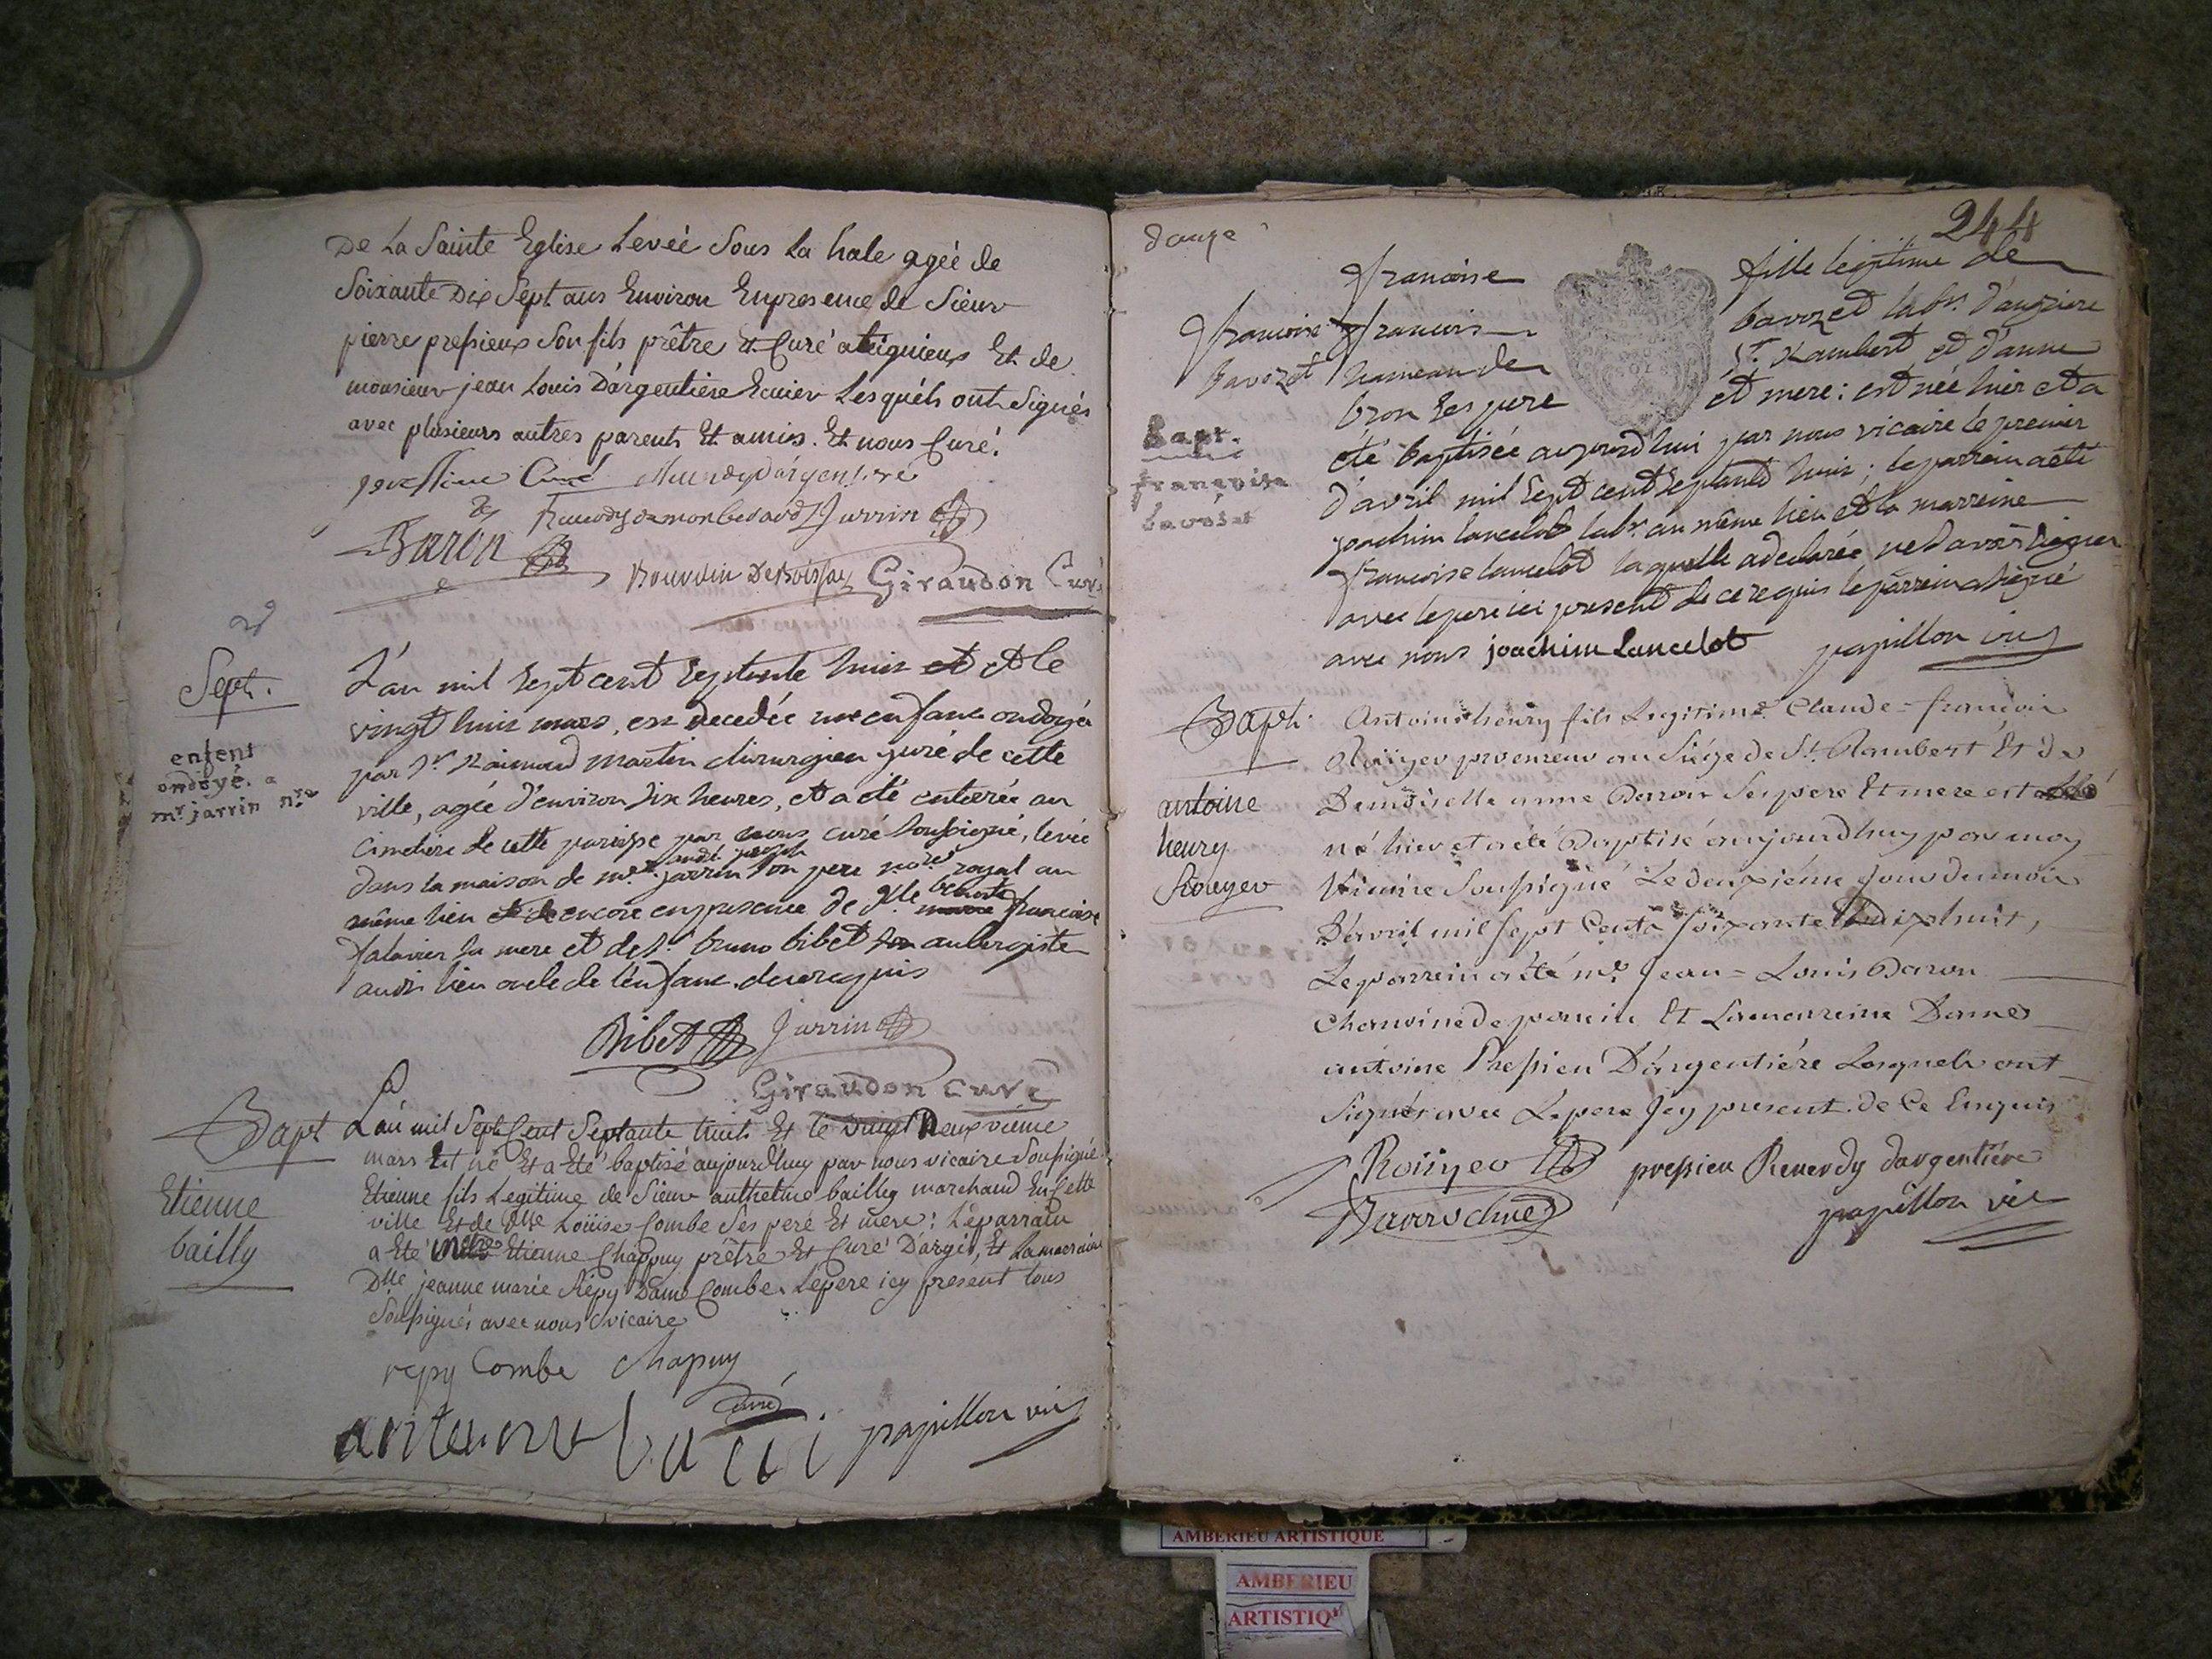 De La Sainte Eglise Levéé Sous La hale agéé de
Soixante Dix Sept ans Environ En presence de Sieur
pierre pressieux Son fils prêtre Et Curé a Et de
monsieur jean Louis D'argentiere Ecuier Lesquéls ont Signés
avec plusieurs autres parents Et amis. Et nous Curé.
Curé
Jarrin
Baron
Giraudon Curé
Sept.
enfent
ondoyé. a
mr jarrin nre
L'an mil sept cent septante huit et le
vingt huit mars, est decedée un enfant ondoyée
par Sr Raimond martin chirurgien juré de cette
ville, agée d'environ dix heures, et a été enterée au
cimetiere de cette paroisse par nous curé soussigné, levée
dans la maison de mre jarrin son pere nore royal au
même lieu encore en presence de dlle benoite françoise
sa mere et de Sr bruno bibet aubergiste
audit lieu oncle de l'enfant. de ce requis
Bibet Jarrin
Giraudon Curé
Bapt
Etienne
bailly
L'an mil Sept Cent Septante huit Et le Vingt Neuvvieme
mars Est né Et a Eté baptisé aujourd'huy par nous vicaire Soussigné
Etienne fils Legitime de Sieur anthelme bailly marchand En Cette
ville Et de Dlle Loüise Combe Ses pere Et mere: Le parrain
a Eté Etienne Chappuy prêtre Et Curé D'argis, Et La marraine
Dlle jeanne marie Répy Dame Combe. Le pere icy present tous
Soussignés avec nous Vicaire
repy Combe Chapuy
Curé
papillon vic
244
françoise
bavozet
Bapt.
françoise
bavozet
françoise fille legitime de
françois bavozet labr. d'angriere
hameau de St. Rambert et d'anne
bron ses pere et mere: est née hier et a
été baptisée aujourd'hui par nous vicaire le premier
d'avril mil sept cent septante huit; le parrein a été
joachim lancelot labr. au même lieu et la marreine
françoise lancelot laquelle a declarée ne savoir signer
avec le pere ici present de ce requis le parrein a signé
avec nous joachim Lancelot papillon vic
Bapt.
antoine
henry
Rouyer
Antoine henry fils Legitime Claude=françois
Roüyer procureur au Siége de St. Rambert Et de
Demoiselle anne Baron Ses pere Et mere est
né hier et a été Baptisé aujourdhuy par moy
Vicaire Soussigné Le deuxiéme jour du mois
D'avril mil sept Cents soixante Dixhuit,
Le parrein a été mre Jean=Louis Baron
Chanoine de Et La marreine Dame
antoine Pressieu D'argentiére Lesquels ont
Signés avec Le pere Jcy present. de Ce Enquis
Roüyer pressieu Reverdy dargentiére
Baron papillon vic
AMBERIEU ARTISTIQUE
AMBERIEU
ARTISTIQ